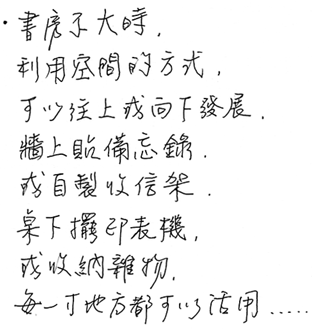 ·書房不大時,
利用空間的方式,
可以往上或向下發展.
牆上貼備忘錄.
或自製收信架.
桌下擺印表機,
或收納雜物.
每一寸地方都可以活用.....